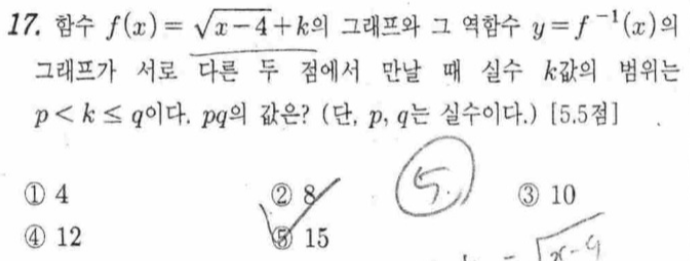 17. 함수 f(x)=√(x-4)+k의 그래프와 그 역함수 y=f⁻¹(x)의
그래프가 서로 다른 두 점에서 만날 때 실수 k값의 범위는
p<k≤q이다. pq의 값은? (단, p, q는 실수이다.) [5.5점]
5.
① 4 ② 8 ③ 10
④ 12 ⑤ 15
= √x-4